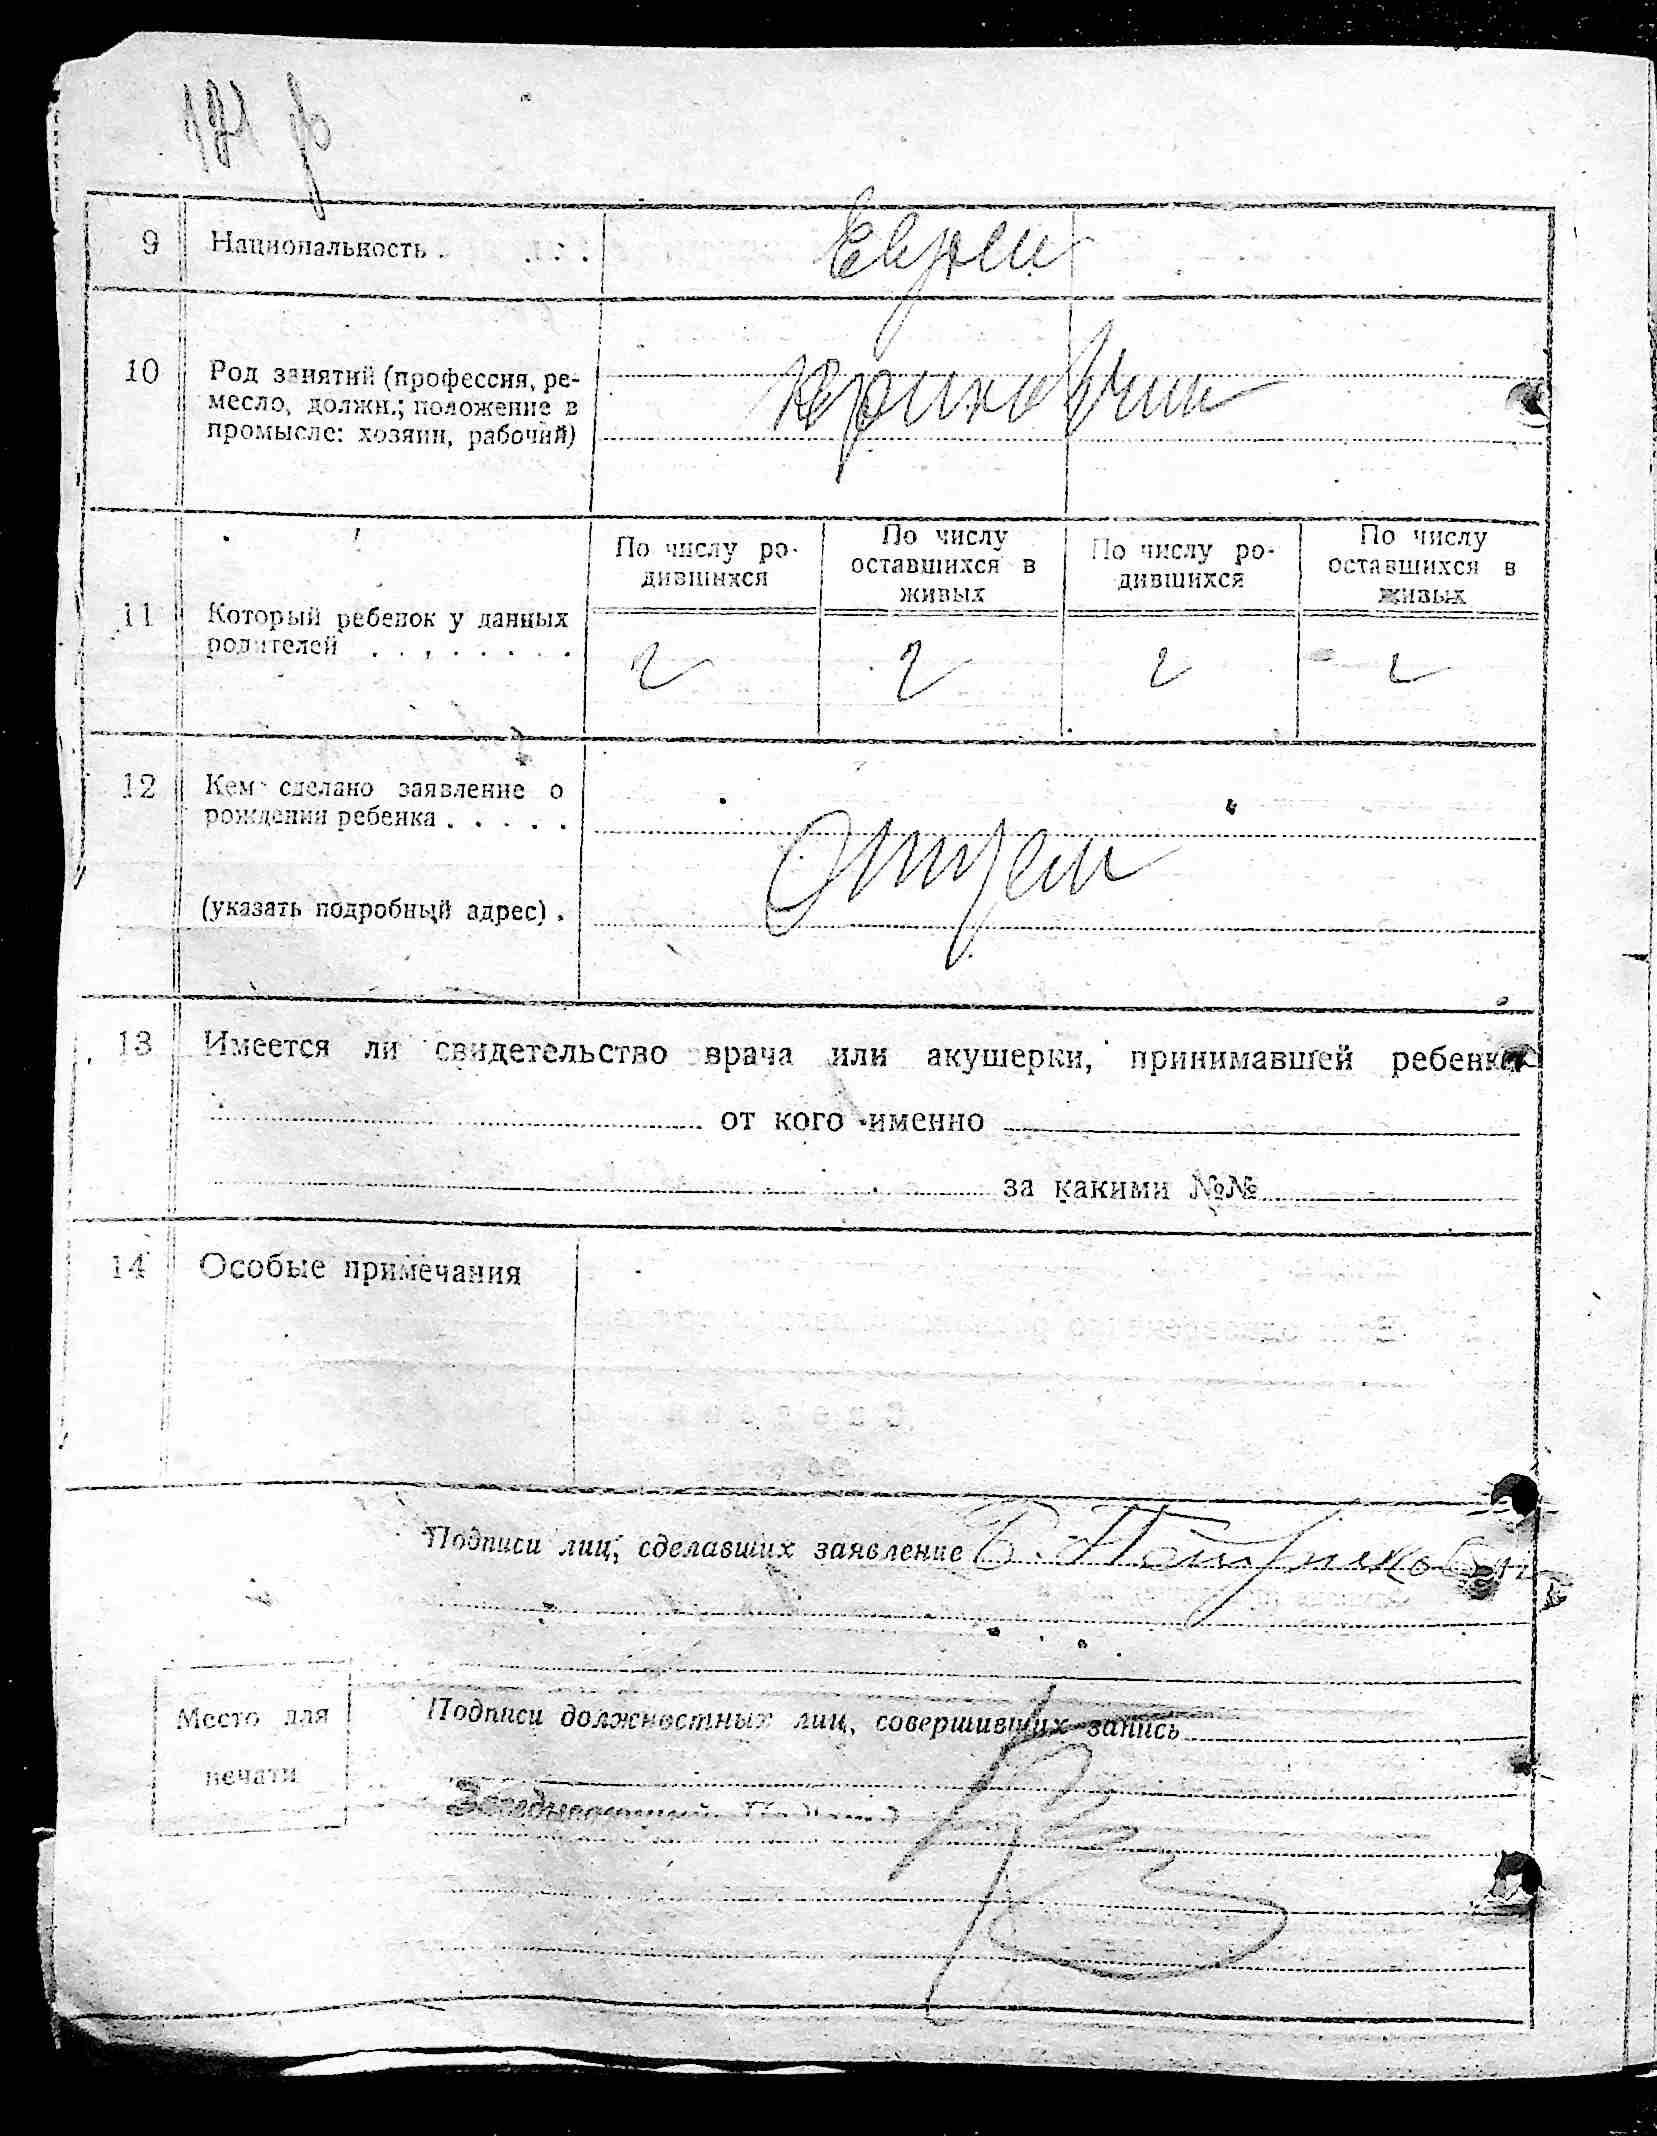 9 Национальность . . . . Евреи
10 Род занятий (профессия, ре-
месло, должн.; положение в
промысле: хозяин, рабочий)
По числу ро-
дившихся
По числу
оставшихся в
живых
По числу ро-
дившихся
По числу
оставшихся в
живых
11 Который ребенок у данных
родителей . . . . . . . .
2 2 2 2
12 Кем сделано заявление о
рождении ребенка . . . . .
Отцем
(указать подробный адрес) .
13 Имеется ли свидетельство врача или акушерки, принимавшей ребенка
от кого именно
за какими №№
14 Особые примечания
Подписи лиц, сделавших заявление Б.
Место для
печати
Подписи должностных лиц, совершивших запись